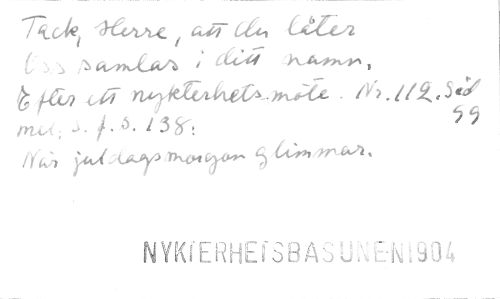 Tack, Herre, att du låter
oss samlas i ditt namn.
Efter ett nykterhetsmöte. Nr. 112. Sid
99
mel. s. f. s. 138:
När juldagsmorgon glimmar.
NYKTERHETSBASUNEN 1904